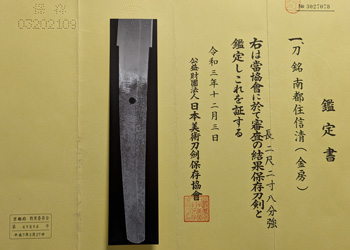 鑑定書
一、刀 銘 南都住信清(金房)
長 二尺二寸八分強
右は當協會に於て審査の結果保存刀剣と
鑑定しこれを証する
令和三年十二月三日
公益財団法人 日本美術刀剣保存協會
№ 3027078
03202109